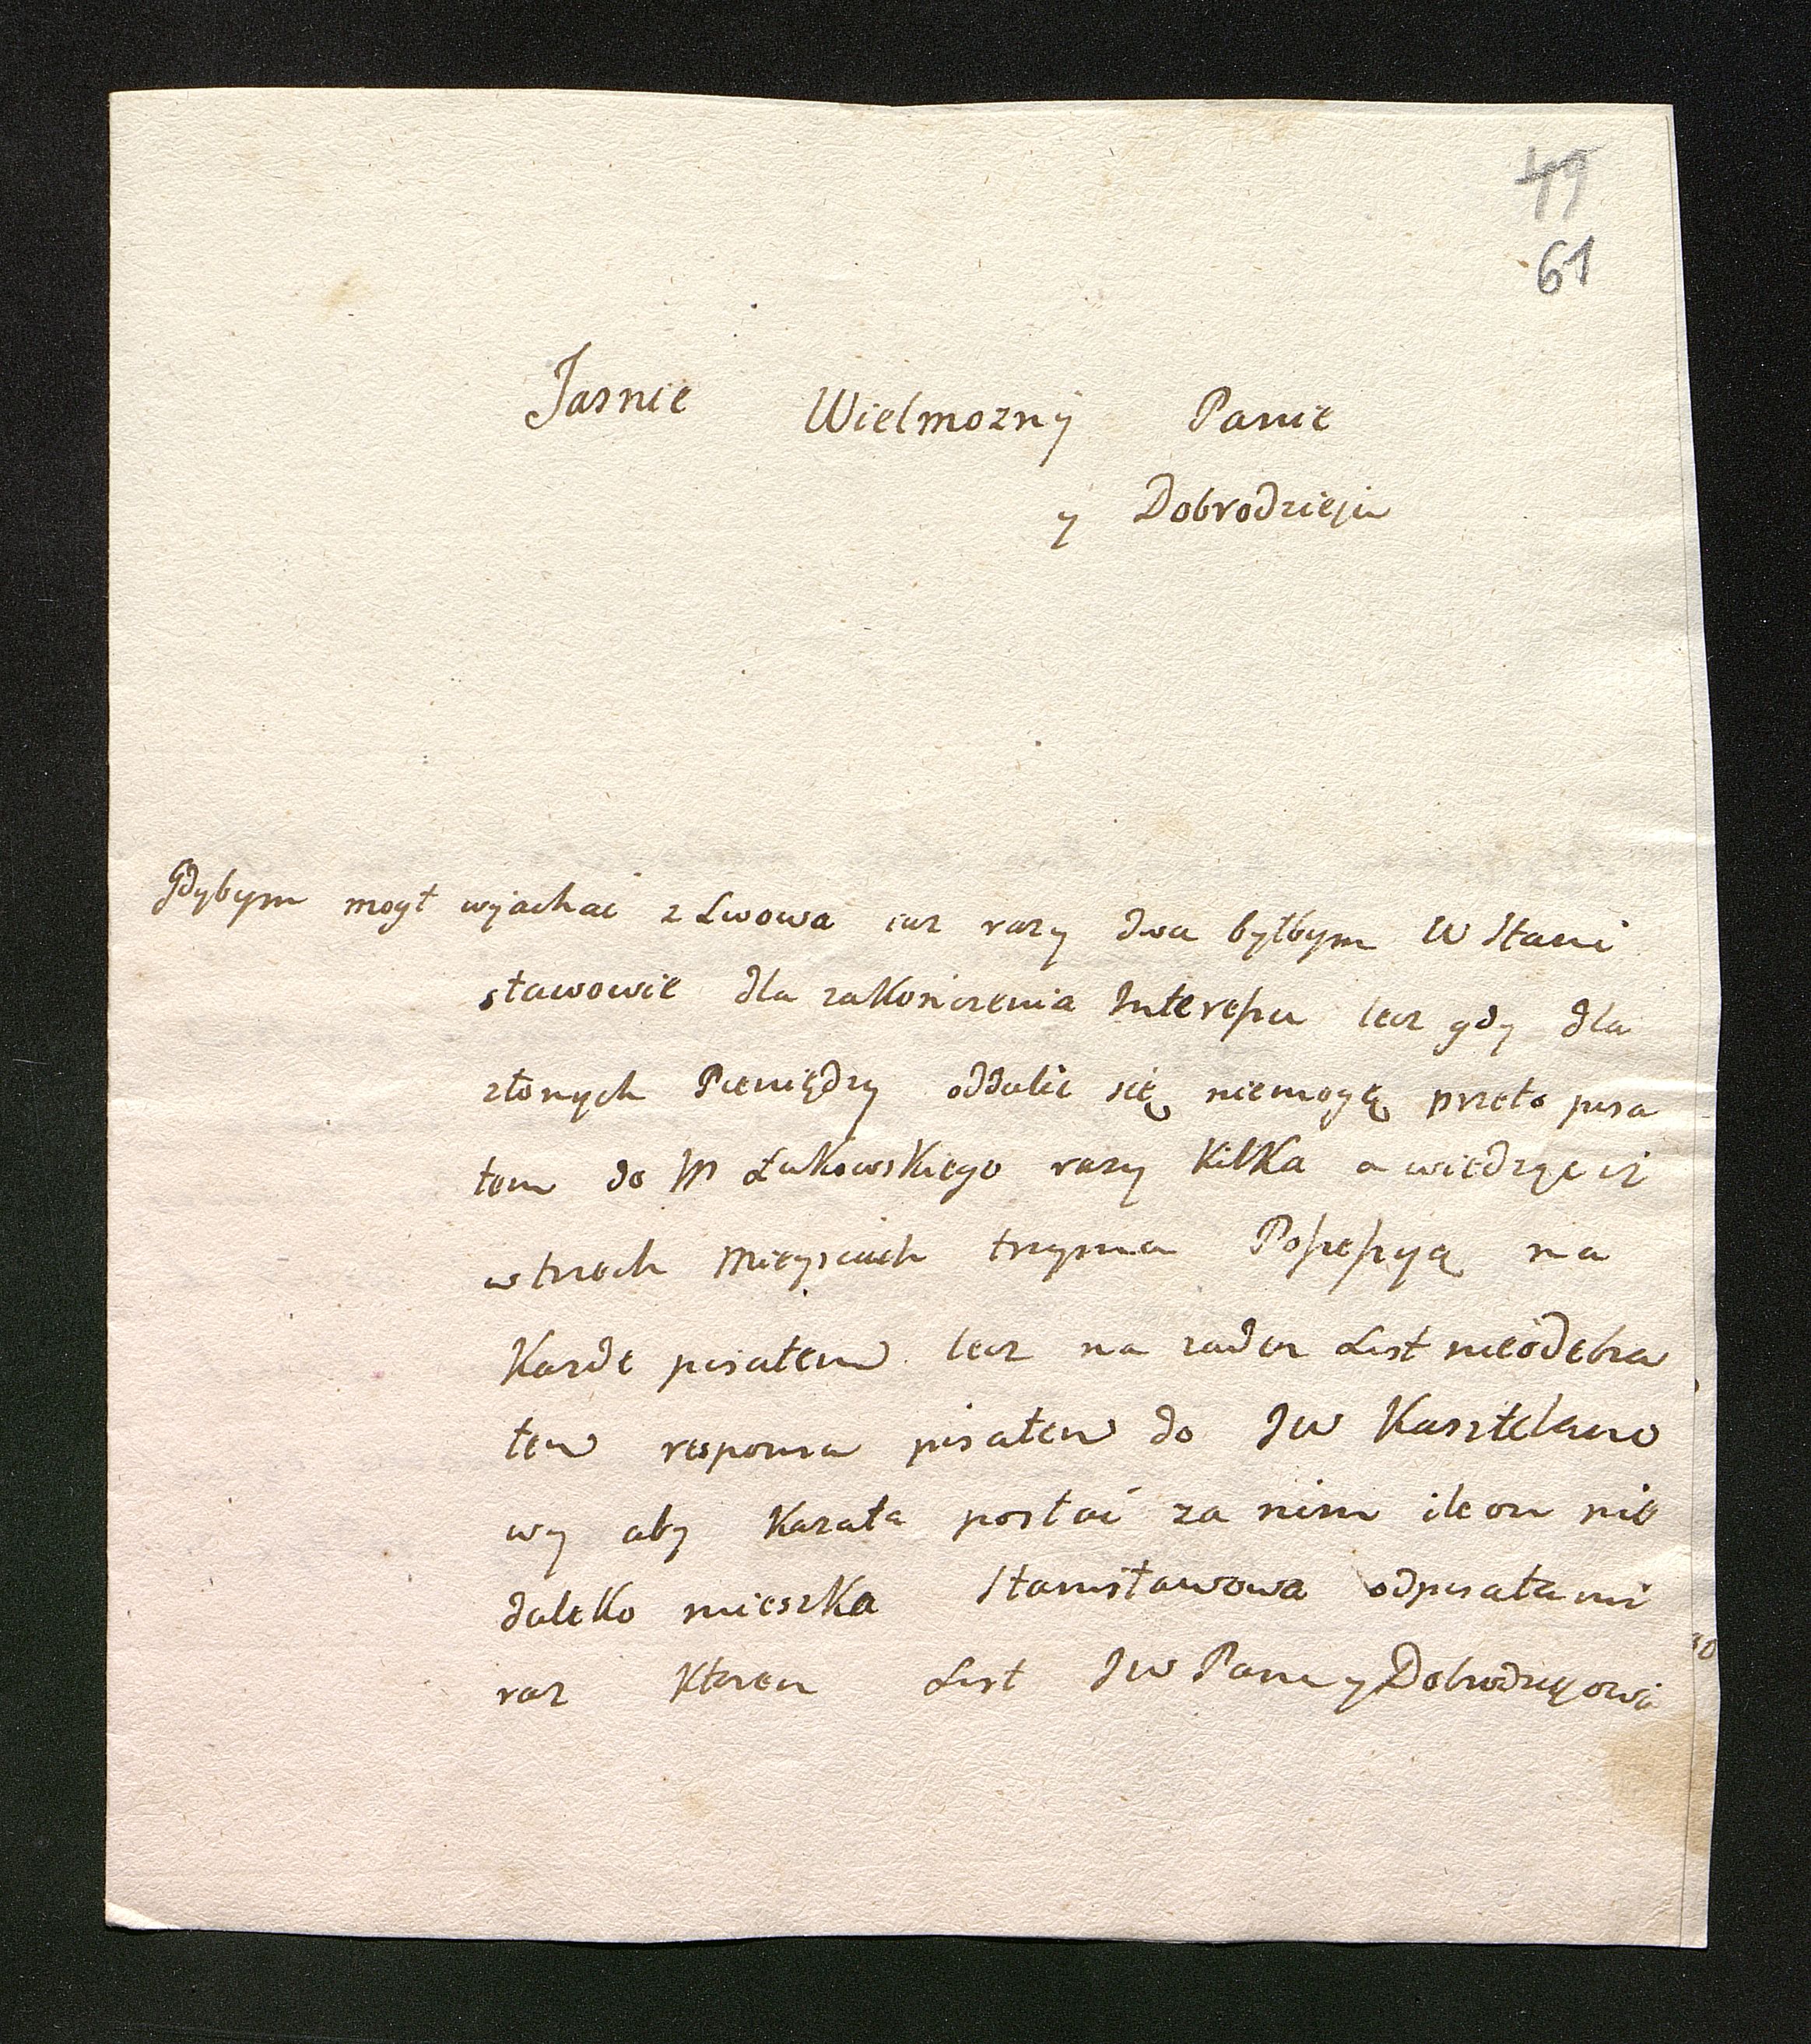 49
61
Jasnie Wielmozny Panie
y Dobrodzieju
Gdybym mogł wyjachać z Lwowa iuz razy dwa byłbym W Stani
sławowie dla zakończenia Interessu lecz gdy dla
złonych Pieniędzy oddalić się niemogę przeto pisa
łem do W Łukowskiego razy Kilka a wiedząc iż
w trzech Mieyscach trzyma Possessyą na
Kazde pisałem lecz na zaden List nieodebra
łem respons pisałem do JW Kasztelano
wy aby Kazała posłać za nim ile on nie
daleko mieszka Stanisławowa odpisała mi
raz Ktoren List JW Panu y Dobrodzieiowi